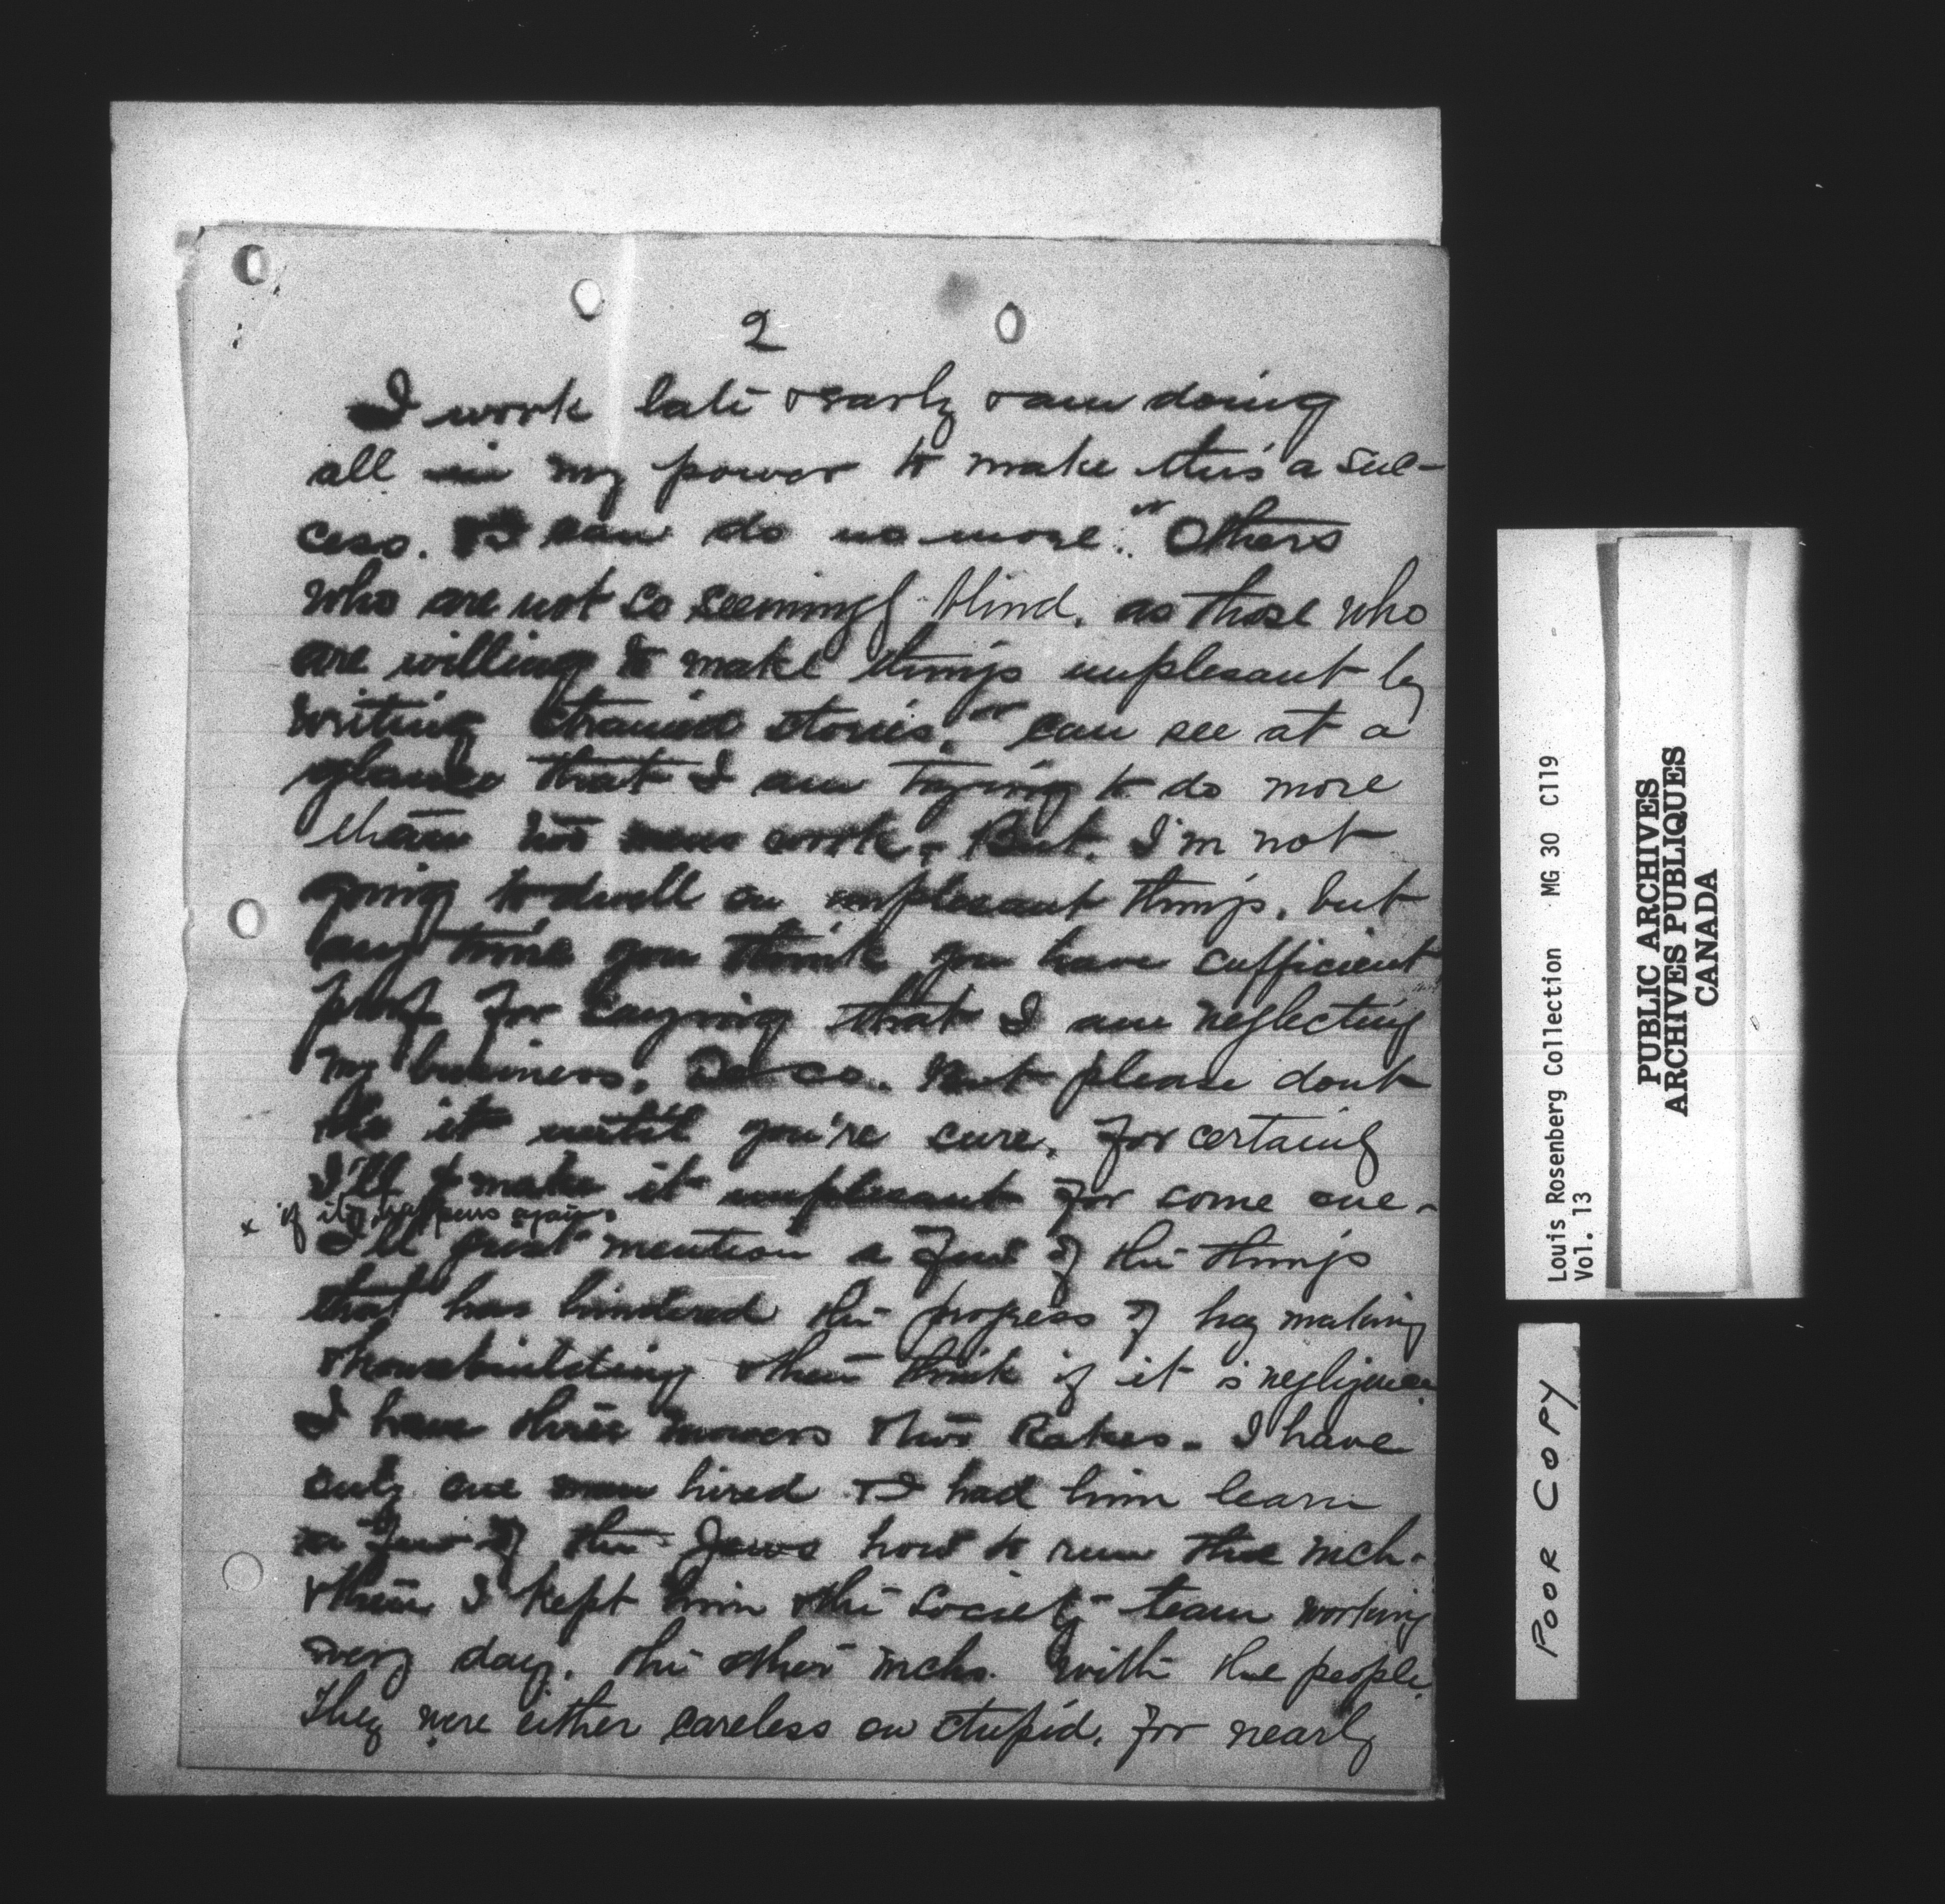 2
I work late & early & am doing
all in my power to make this a suc-
cess. & I can do no more." Others
who are not so seemingly blind, as those who
are willing to make things unplesant by
writing strained stories." can see at a
glance that I am trying to do more
than two mens work. But, I'm not
going to dwell on unplesant things, but
any time you think you have sufficient
proof for saying that I am neglecting
my business, Do so. But please dont
do it until you're sure, for certainly
I'll make it unplesant for some one.
x if it happens again.
I'll just mention a few of the things
that has hindered the progress of hay making
& housebuilding & then think if it is negligence.
I have three mowers & two Rakes. I have
only one man hired & I had him learn
a few of the Jews how to run the mch.
& then I kept him & the Society team working
every day, the other mchs. with the people.
They were either careless or stupid, for nearly
Louis Rosenberg Collection MG 30 C119
Vol. 13
PUBLIC ARCHIVES
ARCHIVES PUBLIQUES
CANADA
POOR COPY